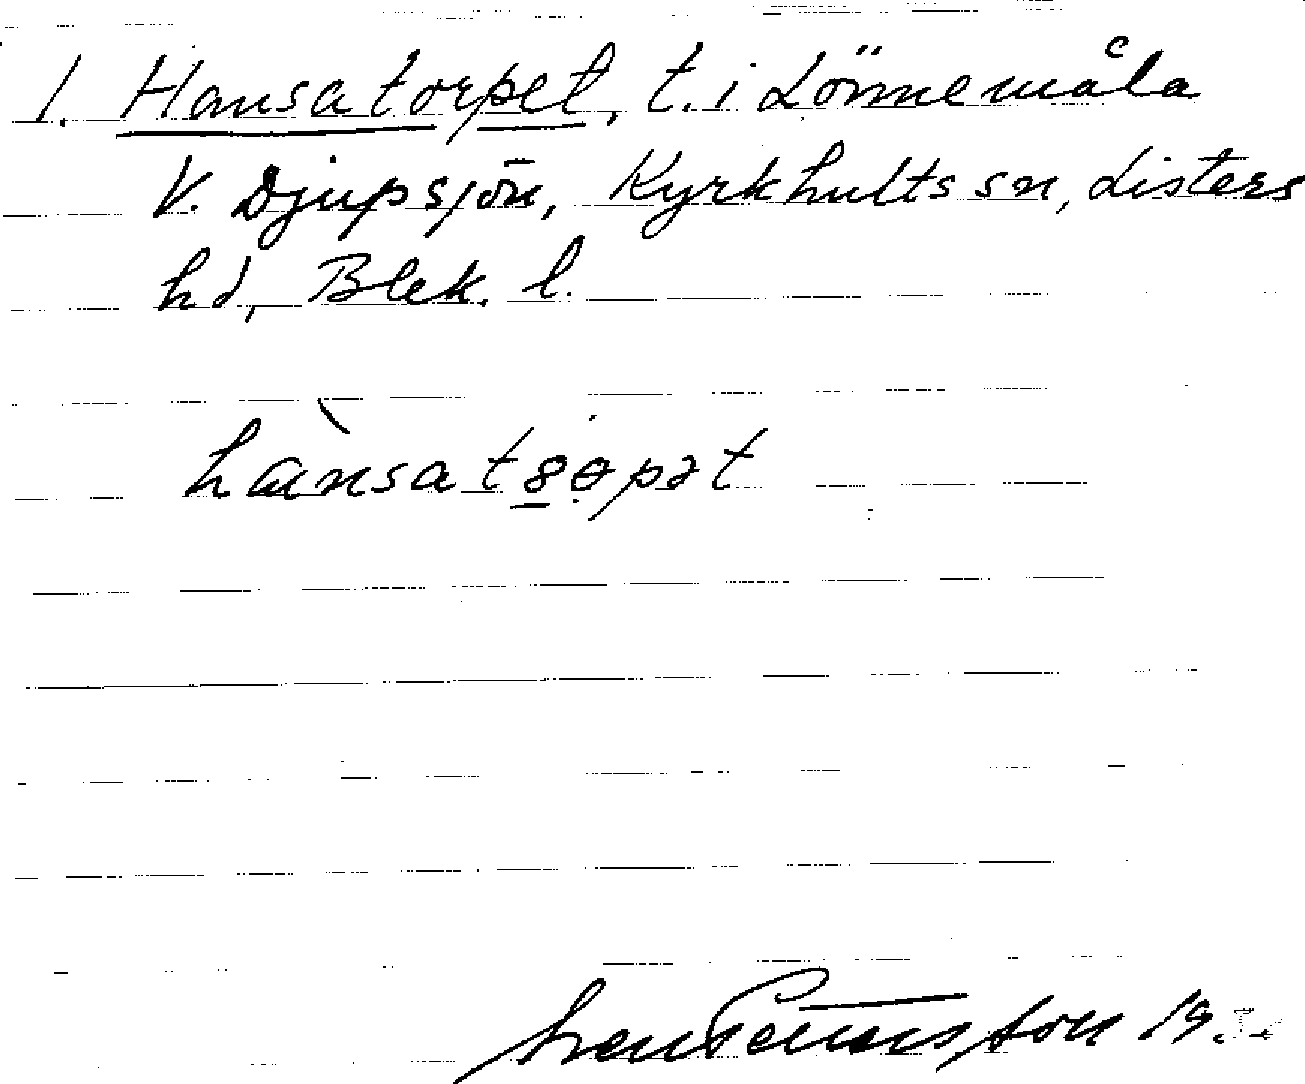 1. Hansatorpet, t. i Lönnemåla
V. Djupsjön, Kyrkhults sn, Listers
hd, Blek. l.
hànsatɞɵpət